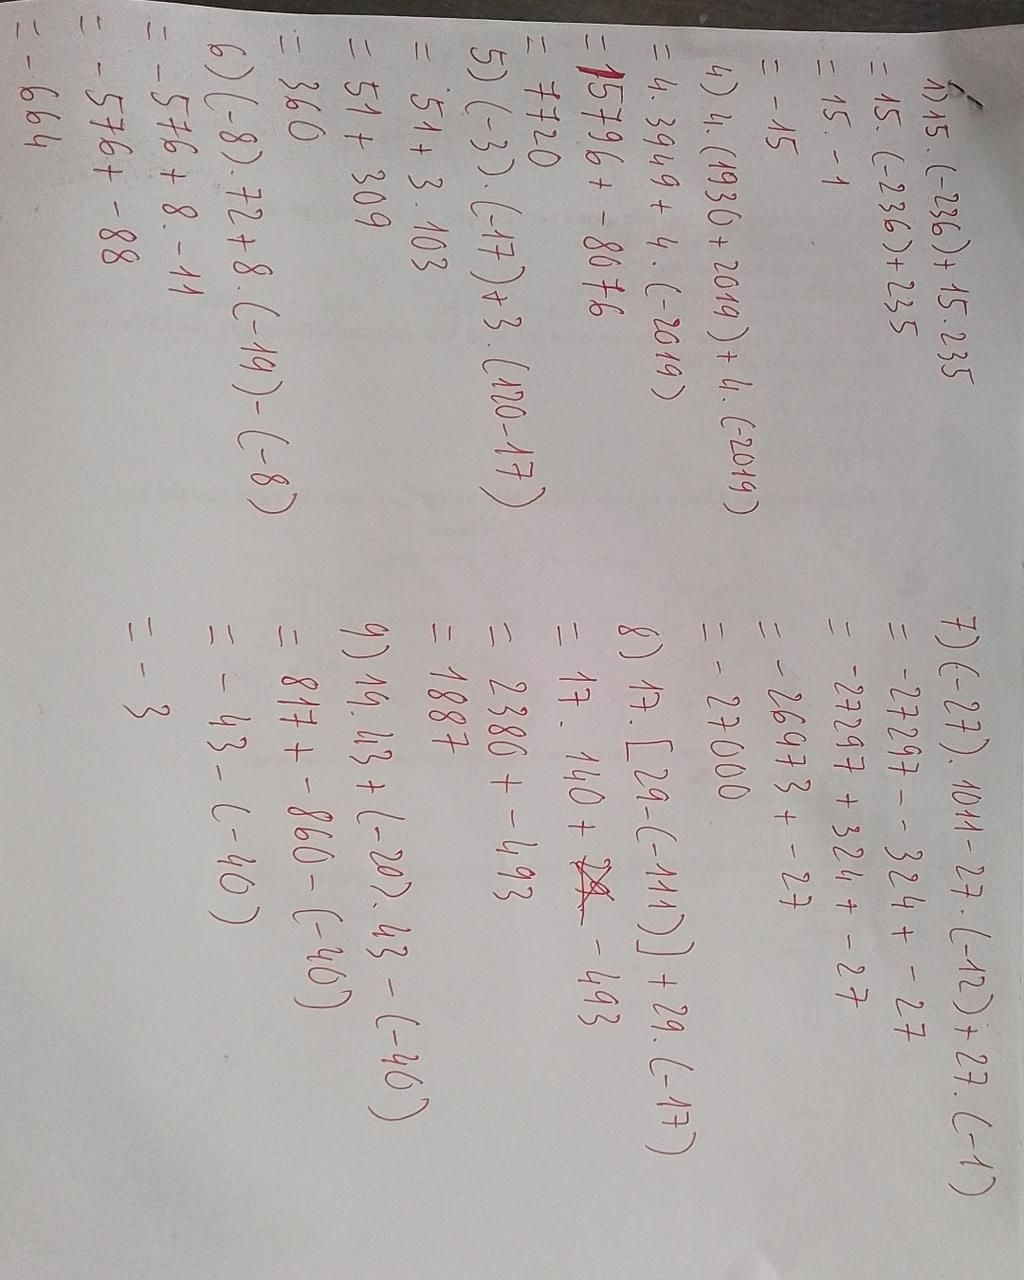 1) 15. (-236) + 15. 235
= 15. (-236) + 235
= 15. -1
= -15
4) 4. (1930 + 2019) + 4. (-2019)
= 4. 3949 + 4. (-2019)
= 15796 + - 8076
= 7720
5) (-3). (-17) + 3. (120-17)
= 51 + 3. 103
= 51 + 309
= 360
6) (-8). 72 + 8. (-19) - (-8)
= - 576 + 8. -11
= - 576 + - 88
= - 664
7) (-27). 1011 - 27. (-12) + 27. (-1)
= -27297 - - 324 + - 27
= -27297 + 324 + - 27
= - 26973 + - 27
= - 27000
8) 17. [29 - (-111)] + 29. (-17)
= 17. 140 + - 493
= 2380 + - 493
= 1887
9) 19. 43 + (-20). 43 - (-40)
= 817 + - 860 - (-40)
= - 43 - (-40)
= - 3